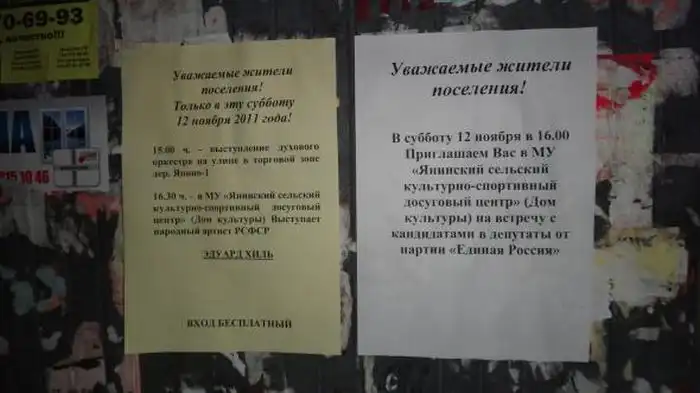 0-69-93
Уважаемые жители
поселения!
Только в эту субботу
12 ноября 2011 года!
15.00 ч. – выступление духового
оркестра на улице в торговой зоне
дер. Янино-1
16.30 ч. – в МУ «Янинский сельский
культурно-спортивный досуговый
центр» (Дом культуры) Выступает
народный артист РСФСР
ЭДУАРД ХИЛЬ
ВХОД БЕСПЛАТНЫЙ
Уважаемые жители
поселения!
В субботу 12 ноября в 16.00
Приглашаем Вас в МУ
«Янинский сельский
культурно-спортивный
досуговый центр» (Дом
культуры) на встречу с
кандидатами в депутаты от
партии «Единая Россия»
НА
915 10 46